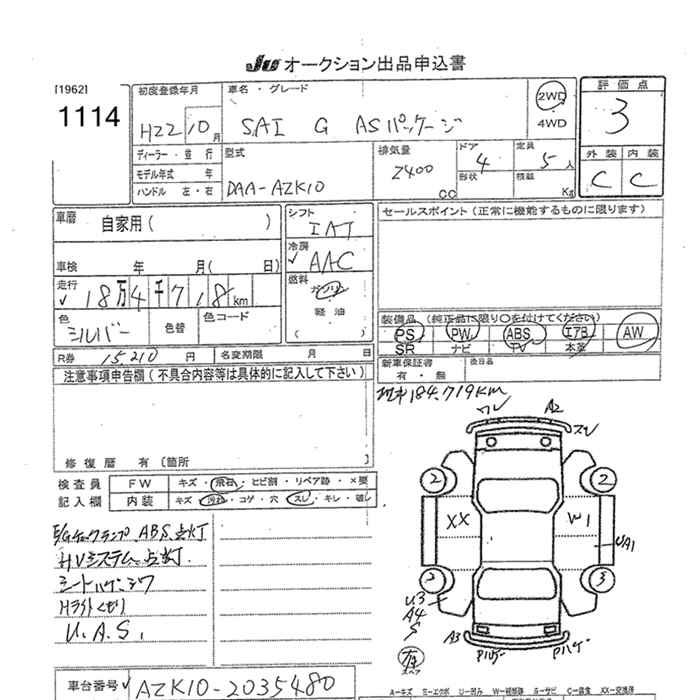 JU オークション出品申込書
[1962]
1114
初度登録年月
H22 10月
車名・グレード
SAI G ASパッケージ
2WD
4WD
評価点
3
外装 内装
C C
ディーラー・並行
モデル年式 年
ハンドル 左・右
型式
DAA-AZK10
排気量
2400
CC
ドア
4
形状
定員
5人
積載
Kg
車歴 自家用( )
車検 年 月( 日)
走行
✓ 18万4千718km
色
シルバー
色替
色コード
シフト
IAT
冷房
✓ AAC
燃料
ガソリン
軽油
( )
セールスポイント(正常に機能するものに限ります)
装備品(純正品に限り○を付けてください)
PS PW ABS エアB AW
SR ナビ TV 本革
新車保証書 後日品
有・無
R券 15,210円 名変期限 月 日
注意事項申告欄(不具合内容等は具体的に記入して下さい)
修復歴 有〔箇所
184,719km
検査員
記入欄
FW キズ・飛石・ヒビ割・リペア跡・×要
内装 キズ・汚れ・コゲ・穴・スレ・キレ・破し
E/Gチェックランプ、ABS点灯
HVシステム点灯
シートハゲ・シワ
Hライトくもり
U.A.S.
ワレ A2
スレ
2 2
XX W1
UA1
2 3
U3
A4
S
A3 Pハゲ Pハゲ
有
スペア
車台番号 ✓ AZK10-2035480
A-キズ E-エクボ U-凹み W-補修跡 S-サビ C-腐食 XX-交換済